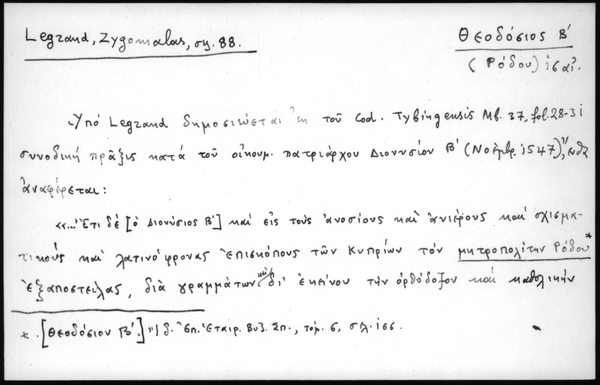 Legrand, Zygomalas, σχ. 88.
Θεοδόσιος Β'
(Ρόδου) ιςʹ αἰ.
Ὑπό Legrand δημοσιεύεται ἐκ τοῦ Cod. Tybingensis Mb. 37, fol. 28-31
συνοδική πρᾶξις κατά τοῦ οἰκουμ. πατριάρχου Διονυσίου Β' (Νοέμβρ. 1547),
ἀναφέρεται:
«...Ἔτι δέ [ὁ Διονύσιος Β'] καί εἰς τούς ἀνοσίους καί ἀνιέρους καί σχισμα-
τικούς καί λατινόφρονας ἐπισκόπους τῶν Κυπρίων τόν μητροπολίτην Ρόδου*
ἐξαποστείλας, διά γραμμάτων καί δι' ἐκείνου τήν ὀρθόδοξον καί καθολικήν
* [Θεοδόσιον Β'.] Ἰδ. Ἐπ. Ἑταιρ. Βυζ. Σπ., τόμ. 6, σελ. 166.